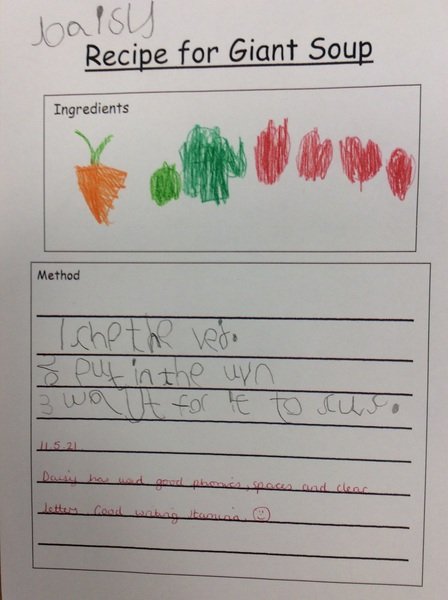 Daisy
Recipe for Giant Soup
Ingredients
Method
1 chp the vej.
2 put in the uvn
3 wayt for it to
11.5.21
Daisy has used good phonics, spaces and clear
letters. Good writing stamina.